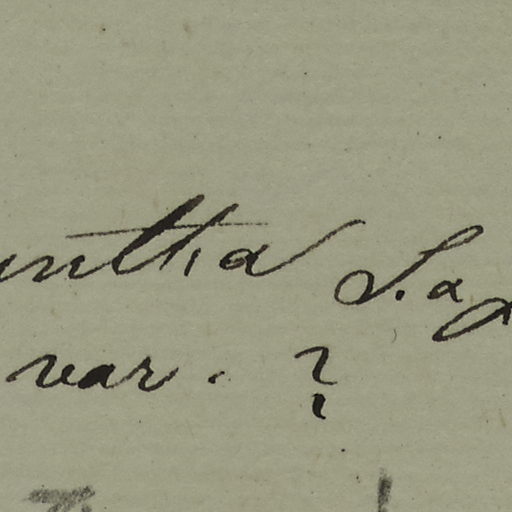 untha L. a
var. ?